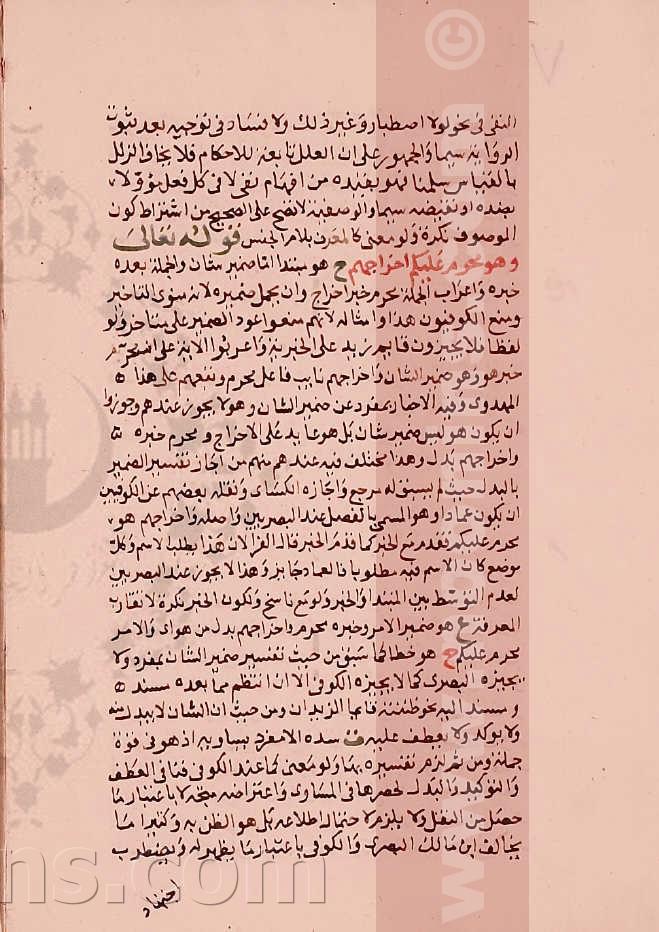 النفى فى نحو لولا اصطبار وغير ذلك ولا فساد فى توجيه بعد ثبوت
الرواية سيما والجمهور على ان العلل تابعة للاحكام فلا يخاف الزلل
بالقياس سلمنا
بضده او نقيضه سيما والوصفية لا تصح على الصحيح من اشتراط كون
الموصوف نكرة ولو معنى كالمعرف بلام الجنس قوله تعالى
وهو محرم عليكم اخراجهم ح هو مبتدا اما ضمير شان والجملة بعده
خبره واعراب الجملة محرم خبر اخراج وان يحمل ضميره لانه منوى التاخير
ومنع الكوفيون هذا وامثاله لانهم منعوا عود الضمير على متاخر ولو
لفظا فلا يجيزون قايم زيد على الخبرية واعربوا الاية على ان محرم
خبر هو وهو ضمير الشان واخراجهم نايب فاعل محرم وتبعهم على هذا
المهدوى وفيه الاخبار بمفرد عن ضمير الشان وهو لا يجوز عندهم وجوزوا
ان يكون هو ليس ضمير شان بل هو عايد على الاخراج ومحرم خبره
واخراجهم بدل وهذا مختلف فيه عندهم منهم من اجاز تفسير الضمير
بالبدل حيث لم يسبق له مرجع واجازه الكسائى ونقله بعضهم عن الكوفيين
ان يكون عمادا وهو المسمى بالفصل عند البصريين واصله واخراجهم هو
محرم عليكم تقدم مع الخبر كما قدم الخبر قال الفرا لان هذا يطلب الاسم وكل
موضع كان الاسم فيه مطلوبا فالعماد جايز وهذا لا يجوز عند البصريين
لعدم التوسط بين المبتدا والخبر ولو مع ناسخ وتكون الخبر نكرة لا تقارب
المعرفة ع هو ضمير الامر وخبره محرم واخراجهم بدل من هو اى والامر
محرم عليكم ح هو خطا كما سبق من حيث تفسير ضمير الشان بمفرد ولا
يجيزه البصرى كما لا يجيزه الكوفى الا ان انتظم مما بعده مسند
ومسند اليه نحو ظننته قايما الزيدان ومن حيث ان الشان لا يبدل منه
ولا يوكد ولا يعطف عليه ت سده الامفرد يساويه اذ هو فى قوة
جملة ومن ثم لزم تفسيره بها ولو معنى كما عند الكوفى فما فى العطف
والتوكيد والبدل لحصرها فى المساوى واعتراضه متجه لا باعتبار ما
حصل من النقل ولا يلزم لاحتمال اطلاعه بل هو الظن به وكثيرا ما
يخالف ابن مالك البصرى والكوفى باعتبار ما يظهر له ويضطرب
اجتهاد
www
ns.com